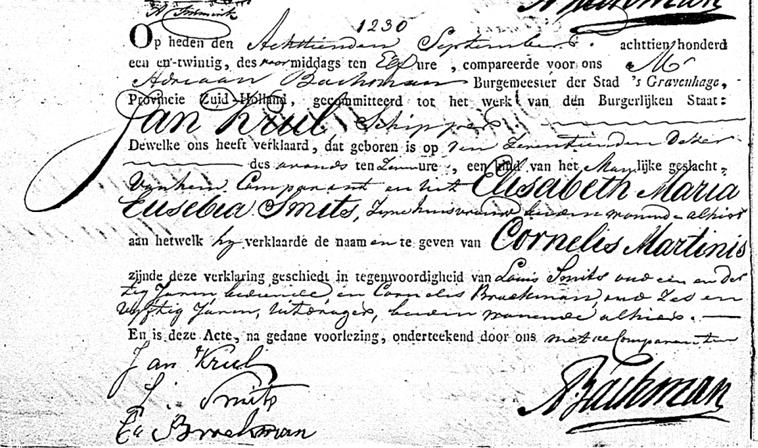 1230
Op heden den Achttienden September achttien honderd
een en twintig, des voormiddags ten Elf ure, compareerde voor ons Mr
Adriaan Bachman Burgemeester der Stad 's Gravenhage,
Provincie Zuid-Holland, gecommitteerd tot het werk van den Burgerlijken Staat:
Jan Krul, Schipper
Dewelke ons heeft verklaard, dat geboren is op den Zeventienden dezer
des avonds ten Zeven ure, een kind van het Manlijke geslacht,
van hem Comparant en uit Elisabeth Maria
Eusebia Smits, Zijne huisvrouw beiden wonende alhier
aan hetwelk hy verklaarde de naamen te geven van Cornelis Martinis
zijnde deze verklaring geschiedt in tegenwoordigheid van Louis Smits oud een en der
tig Jaren, en Cornelis Broekman, oud Zes en
Vyftig Jaren, Uitdrager, beiden wonende alhier.
En is deze Acte, na gedane voorlezing, onderteekend door ons met de Comparanten
Jan Krul
L. Smits
Broekman
A Bachman